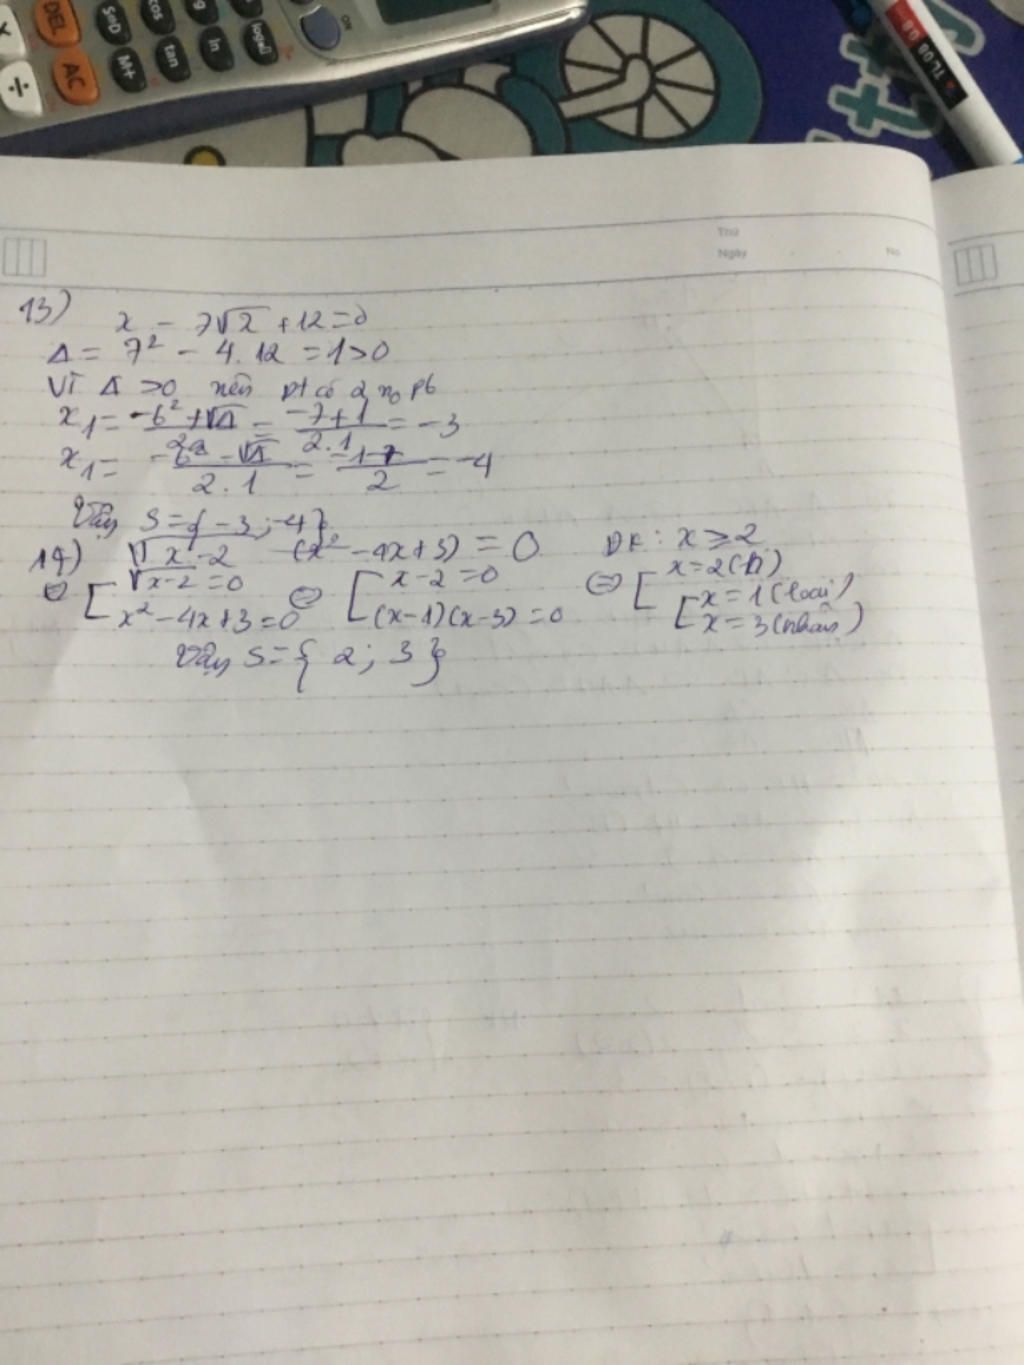 DEL
AC
S⇔D
M+
cos
tan
ln
log₂□
ON
×
÷
TL-08 0.8
Thứ
Ngày
No
13) x - 7√x + 12 = 0
Δ = 7² - 4.12 = 1 > 0
Vì Δ > 0 nên pt có 2 no pb
x₁ = (-b² + √Δ)/2a = (-7+1)/2.1 = -3
x₁ = (-b - √Δ)/2.1 = (-1-7)/2 = -4
Vậy S = { -3 ; -4 }
14) √x-2 (x² - 4x + 3) = 0 ĐK : x ≥ 2
⇔ [ √x-2 = 0 ⇔ [ x - 2 = 0 ⇔ [ x = 2 (n)
x² - 4x + 3 = 0 (x-1)(x-3) = 0 [ x = 1 (loại)
x = 3 (nhận)
Vậy S = { 2 ; 3 }